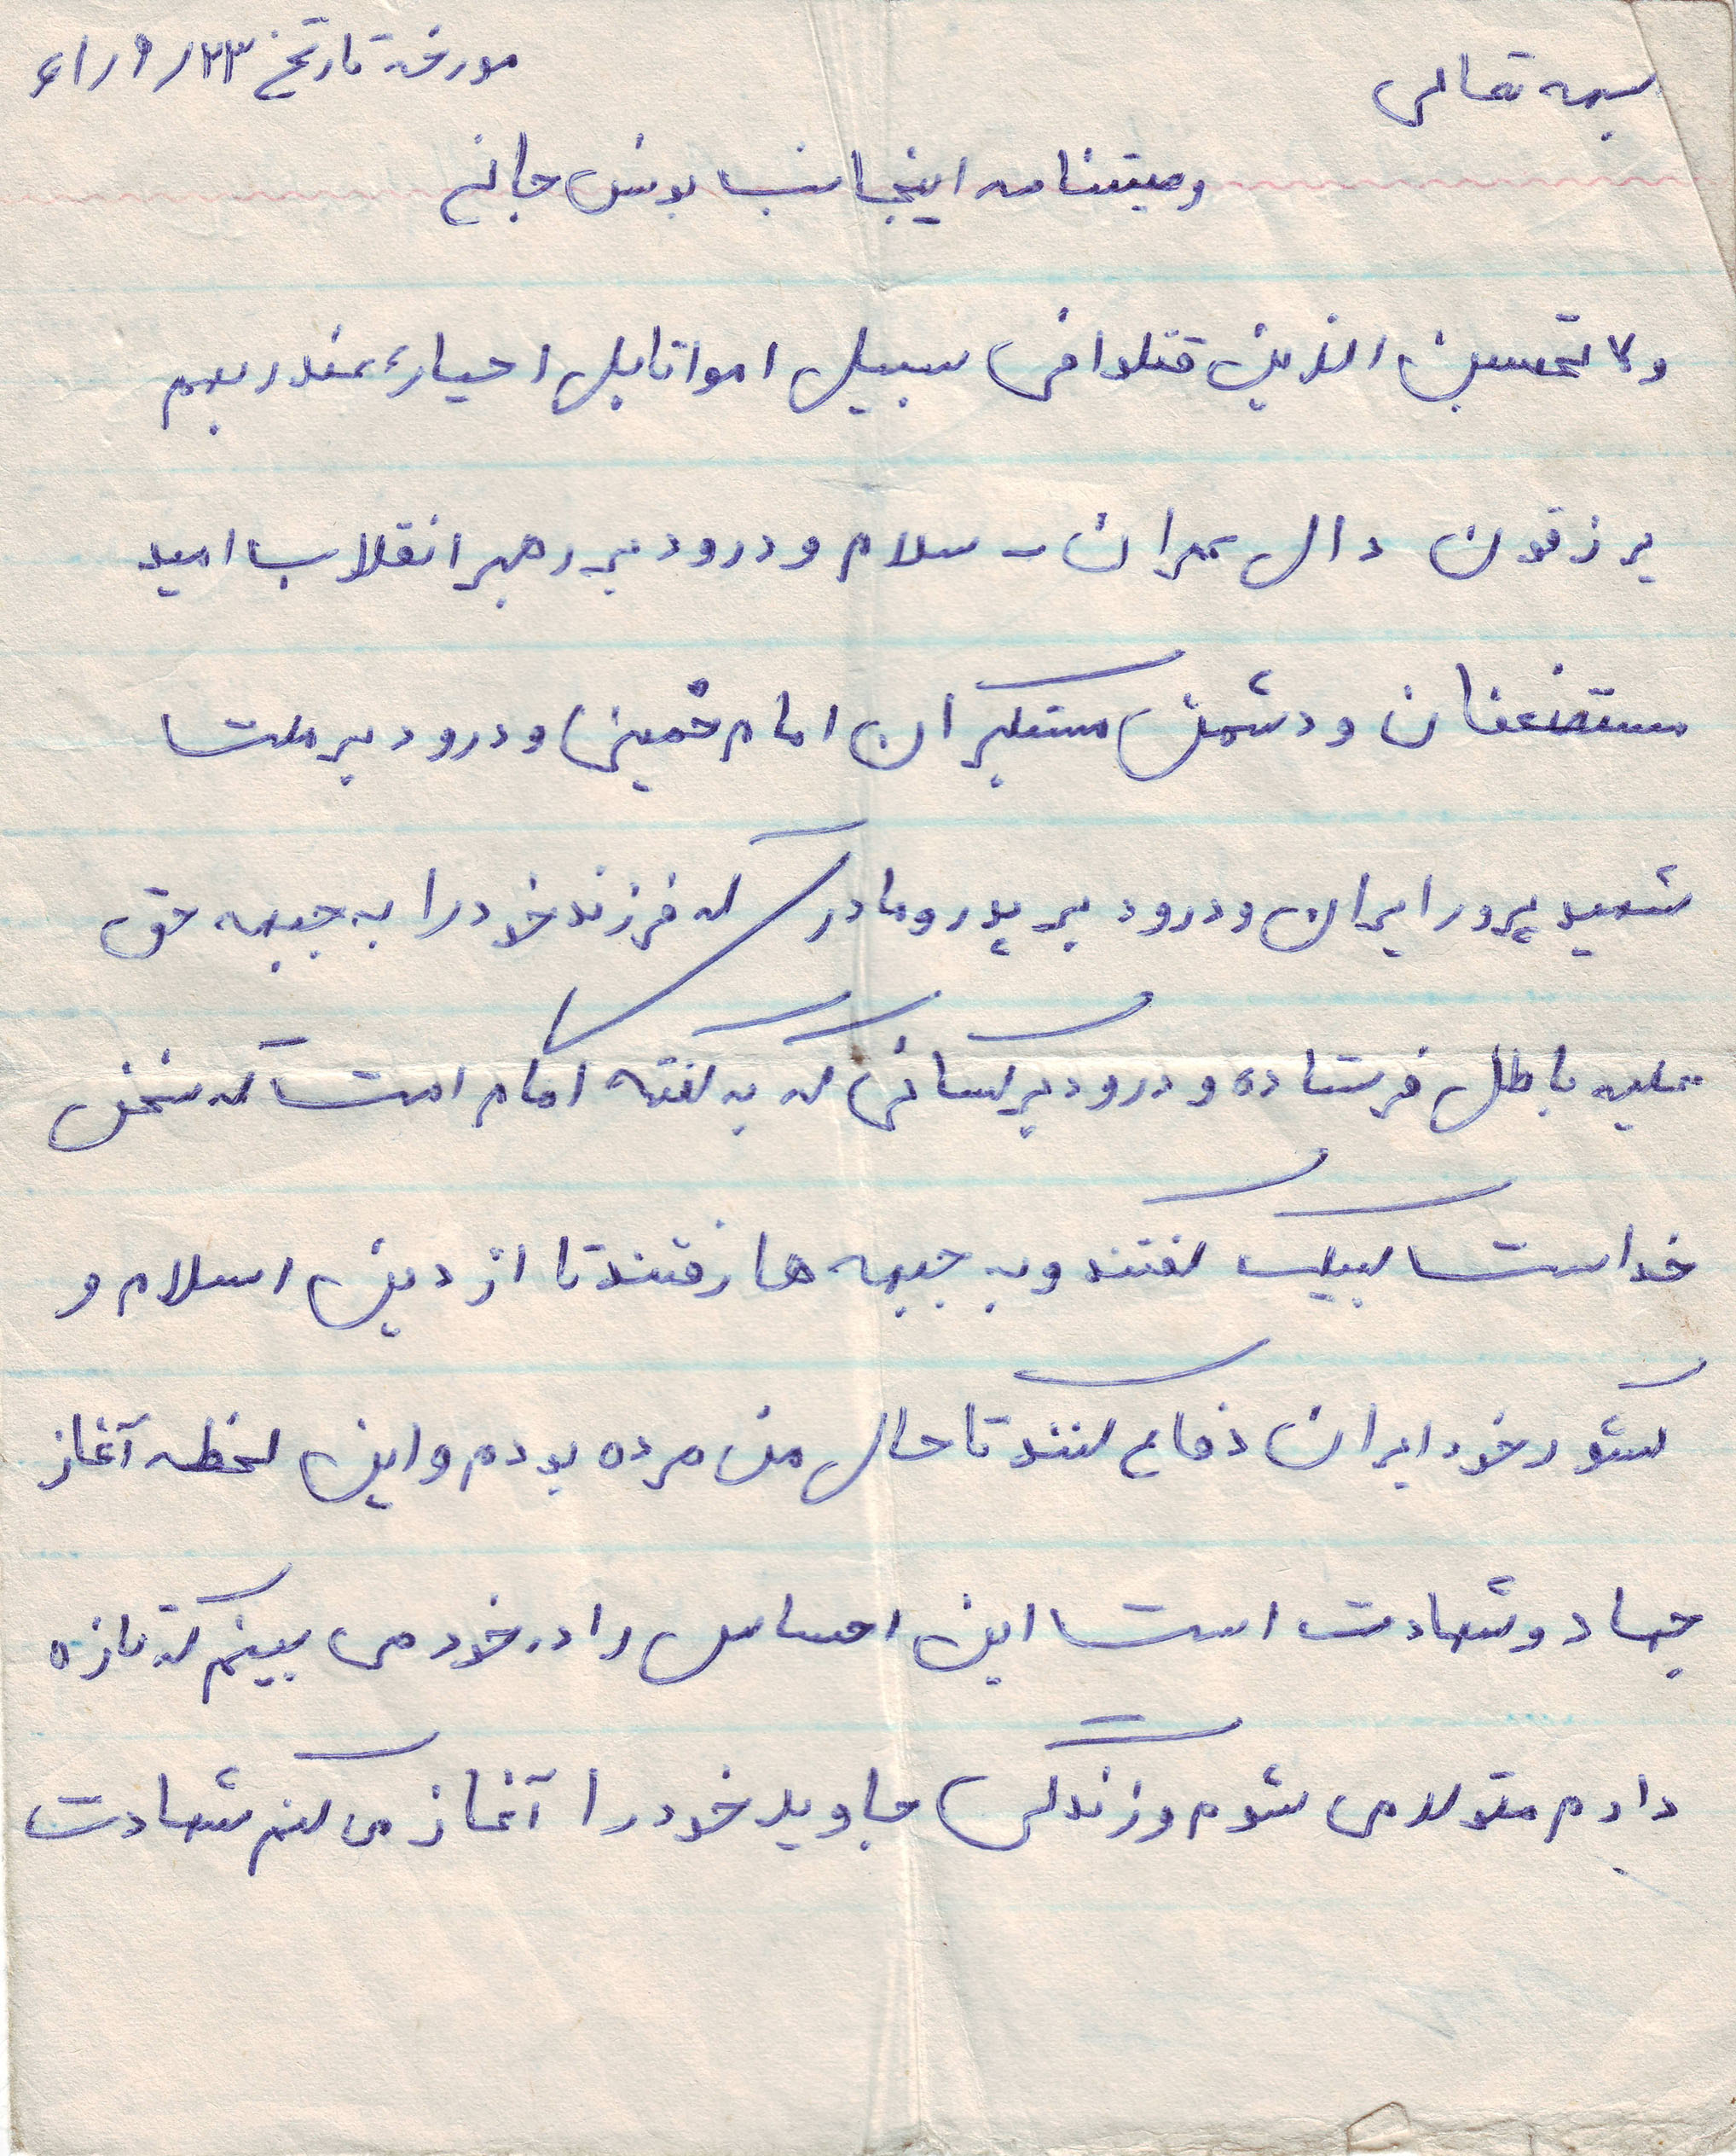 بسمه تعالی
مورخه تاریخ ۶۱/۹/۲۳
وصیتنامه اینجانب یونس جانی
ولا تحسبن الذین قتلوا فی سبیل امواتا بل احیاء عندربهم
یرزقون دال عمران - سلام و درود بر رهبر انقلاب امید
مستضعفان و دشمن مستکبران امام خمینی و درود بر ملت
شهید پرور ایران و درود بر پدر و مادر که فرزند خود را به جبهه حق
علیه باطل فرستاده و درود بر کسانی که به گفته امام امت که سخن
خداست لبیک گفتند و به جبهه ها رفتند تا از دین اسلام و
کشور خود ایران دفاع کنند تا حال من مرده بودم و این لحظه آغاز
جهاد و شهادت است این احساس را در خود می بینم که تازه
دارم متولد می شوم و زندگی جاوید خود را آغاز می کنم شهادت